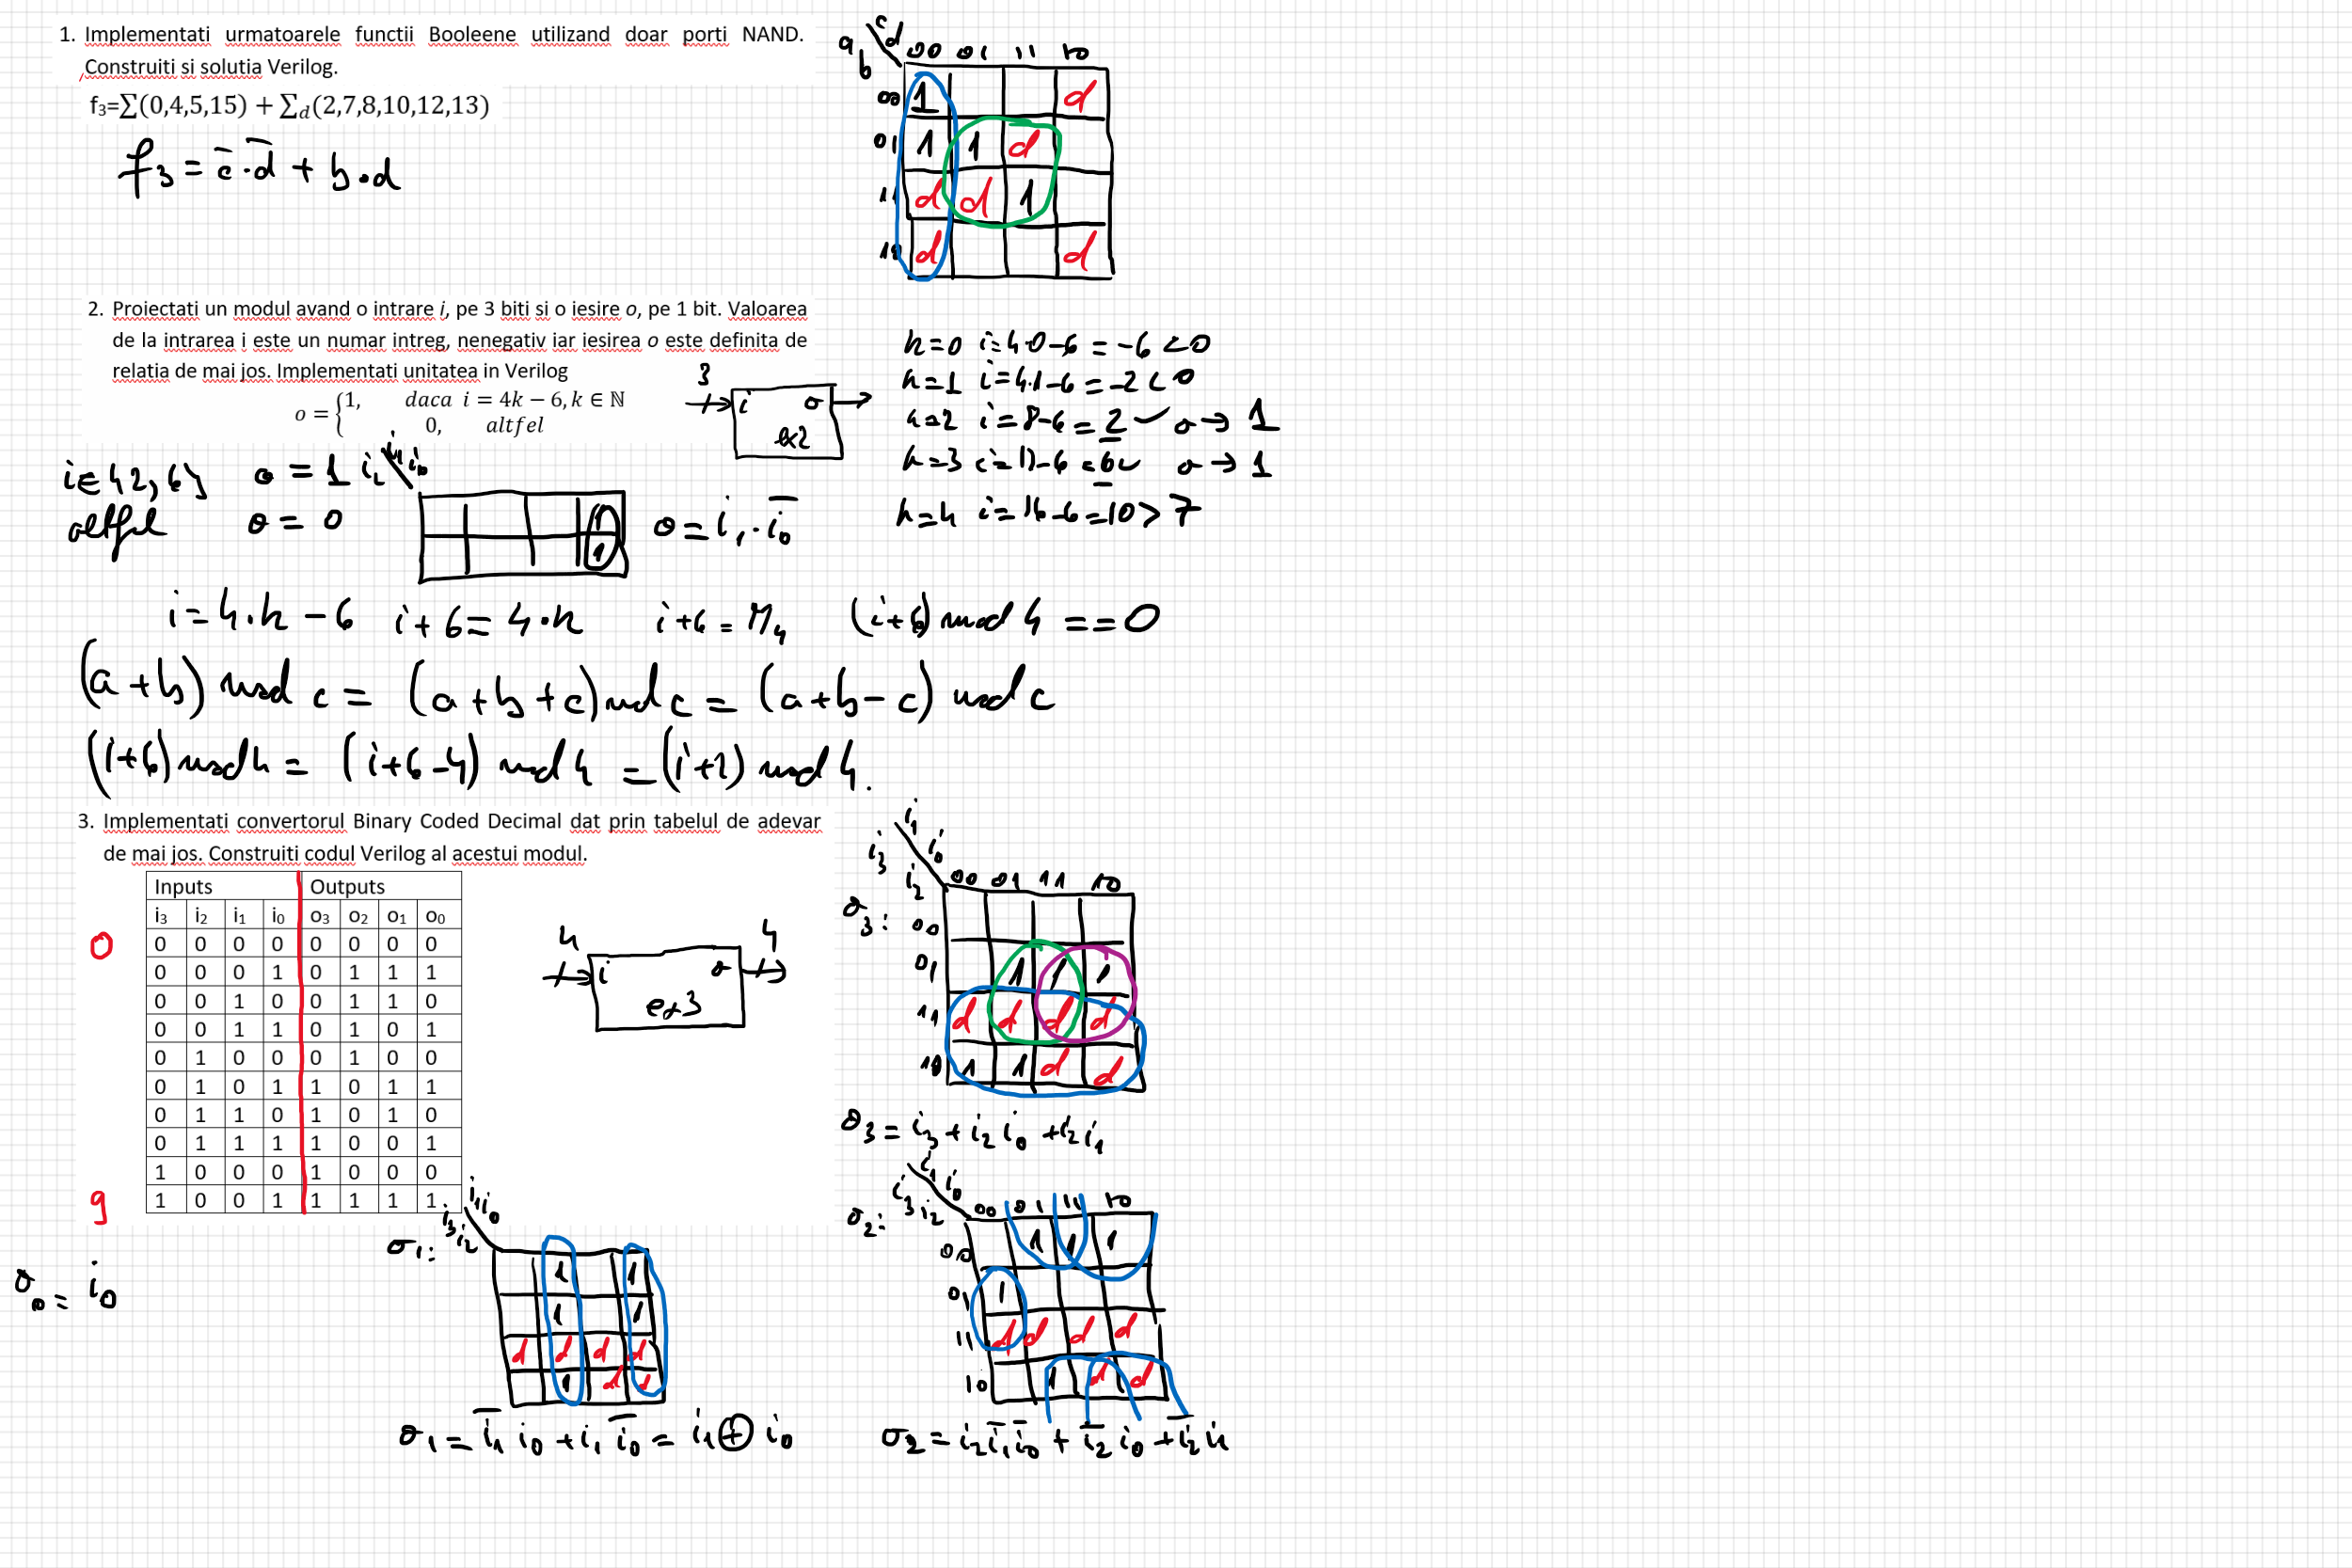 1. Implementati urmatoarele functii Booleene utilizand doar porti NAND.
Construiti si solutia Verilog.
f₃=∑(0,4,5,15) + ∑d(2,7,8,10,12,13)
f₃ = c̅·d̅ + b·d
c d
a b
00 01 11 10
00 1 d
01 1 1 d
11 d d 1
10 d d
2. Proiectati un modul avand o intrare i, pe 3 biti si o iesire o, pe 1 bit. Valoarea
de la intrarea i este un numar intreg, nenegativ iar iesirea o este definita de
relatia de mai jos. Implementati unitatea in Verilog
o = {1, daca i = 4k − 6, k ∈ ℕ
0, altfel
3 i o
ex2
k=0 i=4·0-6 = -6 <0
k=1 i=4·1-6 = -2 < 0
k=2 i=8-6 = 2 ✓ o → 1
k=3 i=12-6 = 6 ✓ o → 1
k=4 i=16-6=10 > 7
i∈{2,6} o = 1
altfel o = 0
i₂ i₁ i₀
1
1
o = i₁·i̅₀
i = 4·k - 6 i + 6 = 4·k i+6 = M₄ (i+6) mod 4 == 0
(a+b) mod c = (a+b+c) mod c = (a+b-c) mod c
(i+6) mod 4 = (i+6-4) mod 4 = (i+2) mod 4.
3. Implementati convertorul Binary Coded Decimal dat prin tabelul de adevar
de mai jos. Construiti codul Verilog al acestui modul.
Inputs Outputs
i₃ i₂ i₁ i₀ o₃ o₂ o₁ o₀
0 0 0 0 0 0 0 0 0
0 0 0 1 0 1 1 1
0 0 1 0 0 1 1 0
0 0 1 1 0 1 0 1
0 1 0 0 0 1 0 0
0 1 0 1 1 0 1 1
0 1 1 0 1 0 1 0
0 1 1 1 1 0 0 1
1 0 0 0 1 0 0 0
9 1 0 0 1 1 1 1 1
4 4
i o
ex3
i₁ i₀
i₃ i₂
00 01 11 10
o₃:
00
01 1 1 1
11 d d d d
10 1 1 d d
o₃ = i₃ + i₂ i₀ + i₂ i₁
i₁ i₀
i₃ i₂
o₂:
00 01 11 10
00 1 1 1
01 1
11 d d d d
10 1 d d
o₂ = i₂ i̅₁ i̅₀ + i̅₂ i₀ + i̅₂ i₁
o₀ = i₀
o₁:
i₁ i₀
i₃ i₂
1 1
1 1
d d d d
1 d d
o₁ = i̅₁ i₀ + i₁ i̅₀ = i₁ ⊕ i₀